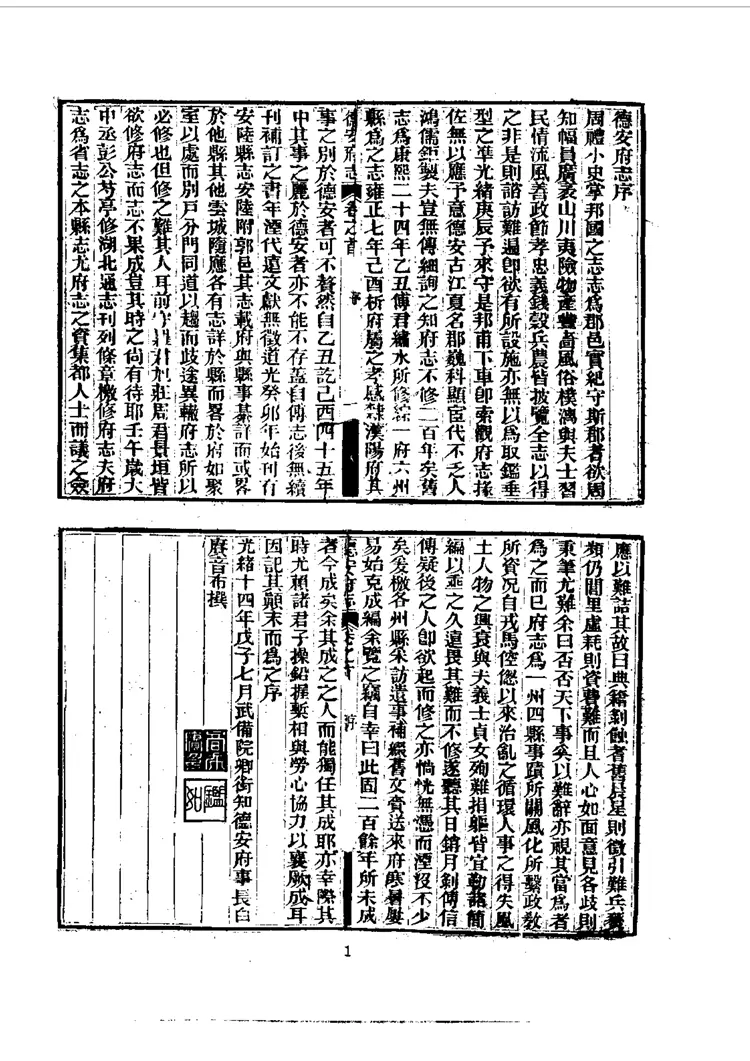 德安府志序
周禮小史掌邦國之志志爲郡邑實紀守斯郡者欲周
知幅員廣袤山川夷險物產豐嗇風俗樸漓與夫士習
民情流風善政節孝忠義錢穀兵農皆披覽全志以得
之非是則諮訪難遍卽欲有所設施亦無以爲取鑑垂
型之準光緒庚辰予來守是邦甫下車卽索觀府志掾
佐無以應予意德安古江夏名郡巍科顯宦代不乏人
鴻儒鉅製夫豈無傳細詢之知府志不修二百年矣舊
志爲康熙二十四年乙丑傅君繡水所修綜一府六州
縣爲之志雍正七年己酉析府屬之孝感隸漢陽府其
德安府志 卷之首 序 一
事之別於德安者可不贅然自乙丑訖己酉四十五年
中其事之麗於德安者亦不能不存蓋自傅志後無續
刊補訂之書年湮代遠文獻無徵道光癸卯年始刊有
安陸縣志安陸附郭邑其志載府與縣事綦詳而或畧
於他縣其他雲城隨應各有志詳於縣而畧於府如聚
室以處而別戶分門同道以趨而歧途異轍府志所以
必修也但修之難其人耳前守 君旭莊周君景垣皆
欲修府志而志不果成豈其時之尚有待耶壬午歲大
中丞彭公芍亭修湖北通志刊列條章檄修府志夫府
志爲省志之本縣志尤府志之資集都人士而議之僉
應以難詰其故曰典籍剝蝕耆舊晨星則徵引難兵燹
頻仍閭里虛耗則資費難而且人心如面意見各歧則
秉筆尤難余曰否否天下事奚以難辭亦視其當爲者
爲之而已府志爲一州四縣事蹟所關風化所繫政教
所資况自戎馬倥偬以來治亂之循環人事之得失風
土人物之興衰與夫義士貞女殉難捐軀皆宜勒諸簡
編以垂之久遠畏其難而不修遂聽其日銷月剝傳信
傳疑後之人卽欲起而修之亦惝恍無憑而湮沒不少
矣爰檄各州縣采訪遺事補綴舊文賫送來府寒暑屢
易始克成編余覽之竊自幸曰此固二百餘年所未成
德安府志 卷之首 序
者今成矣余其成之之人而能獨任其成耶亦幸際其
時尤賴諸君子操鉛握槧相與勞心協力以襄厥成耳
因記其顛末而爲之序
光緒十四年戊子七月武備院卿銜知德安府事長白
賡音布撰
1